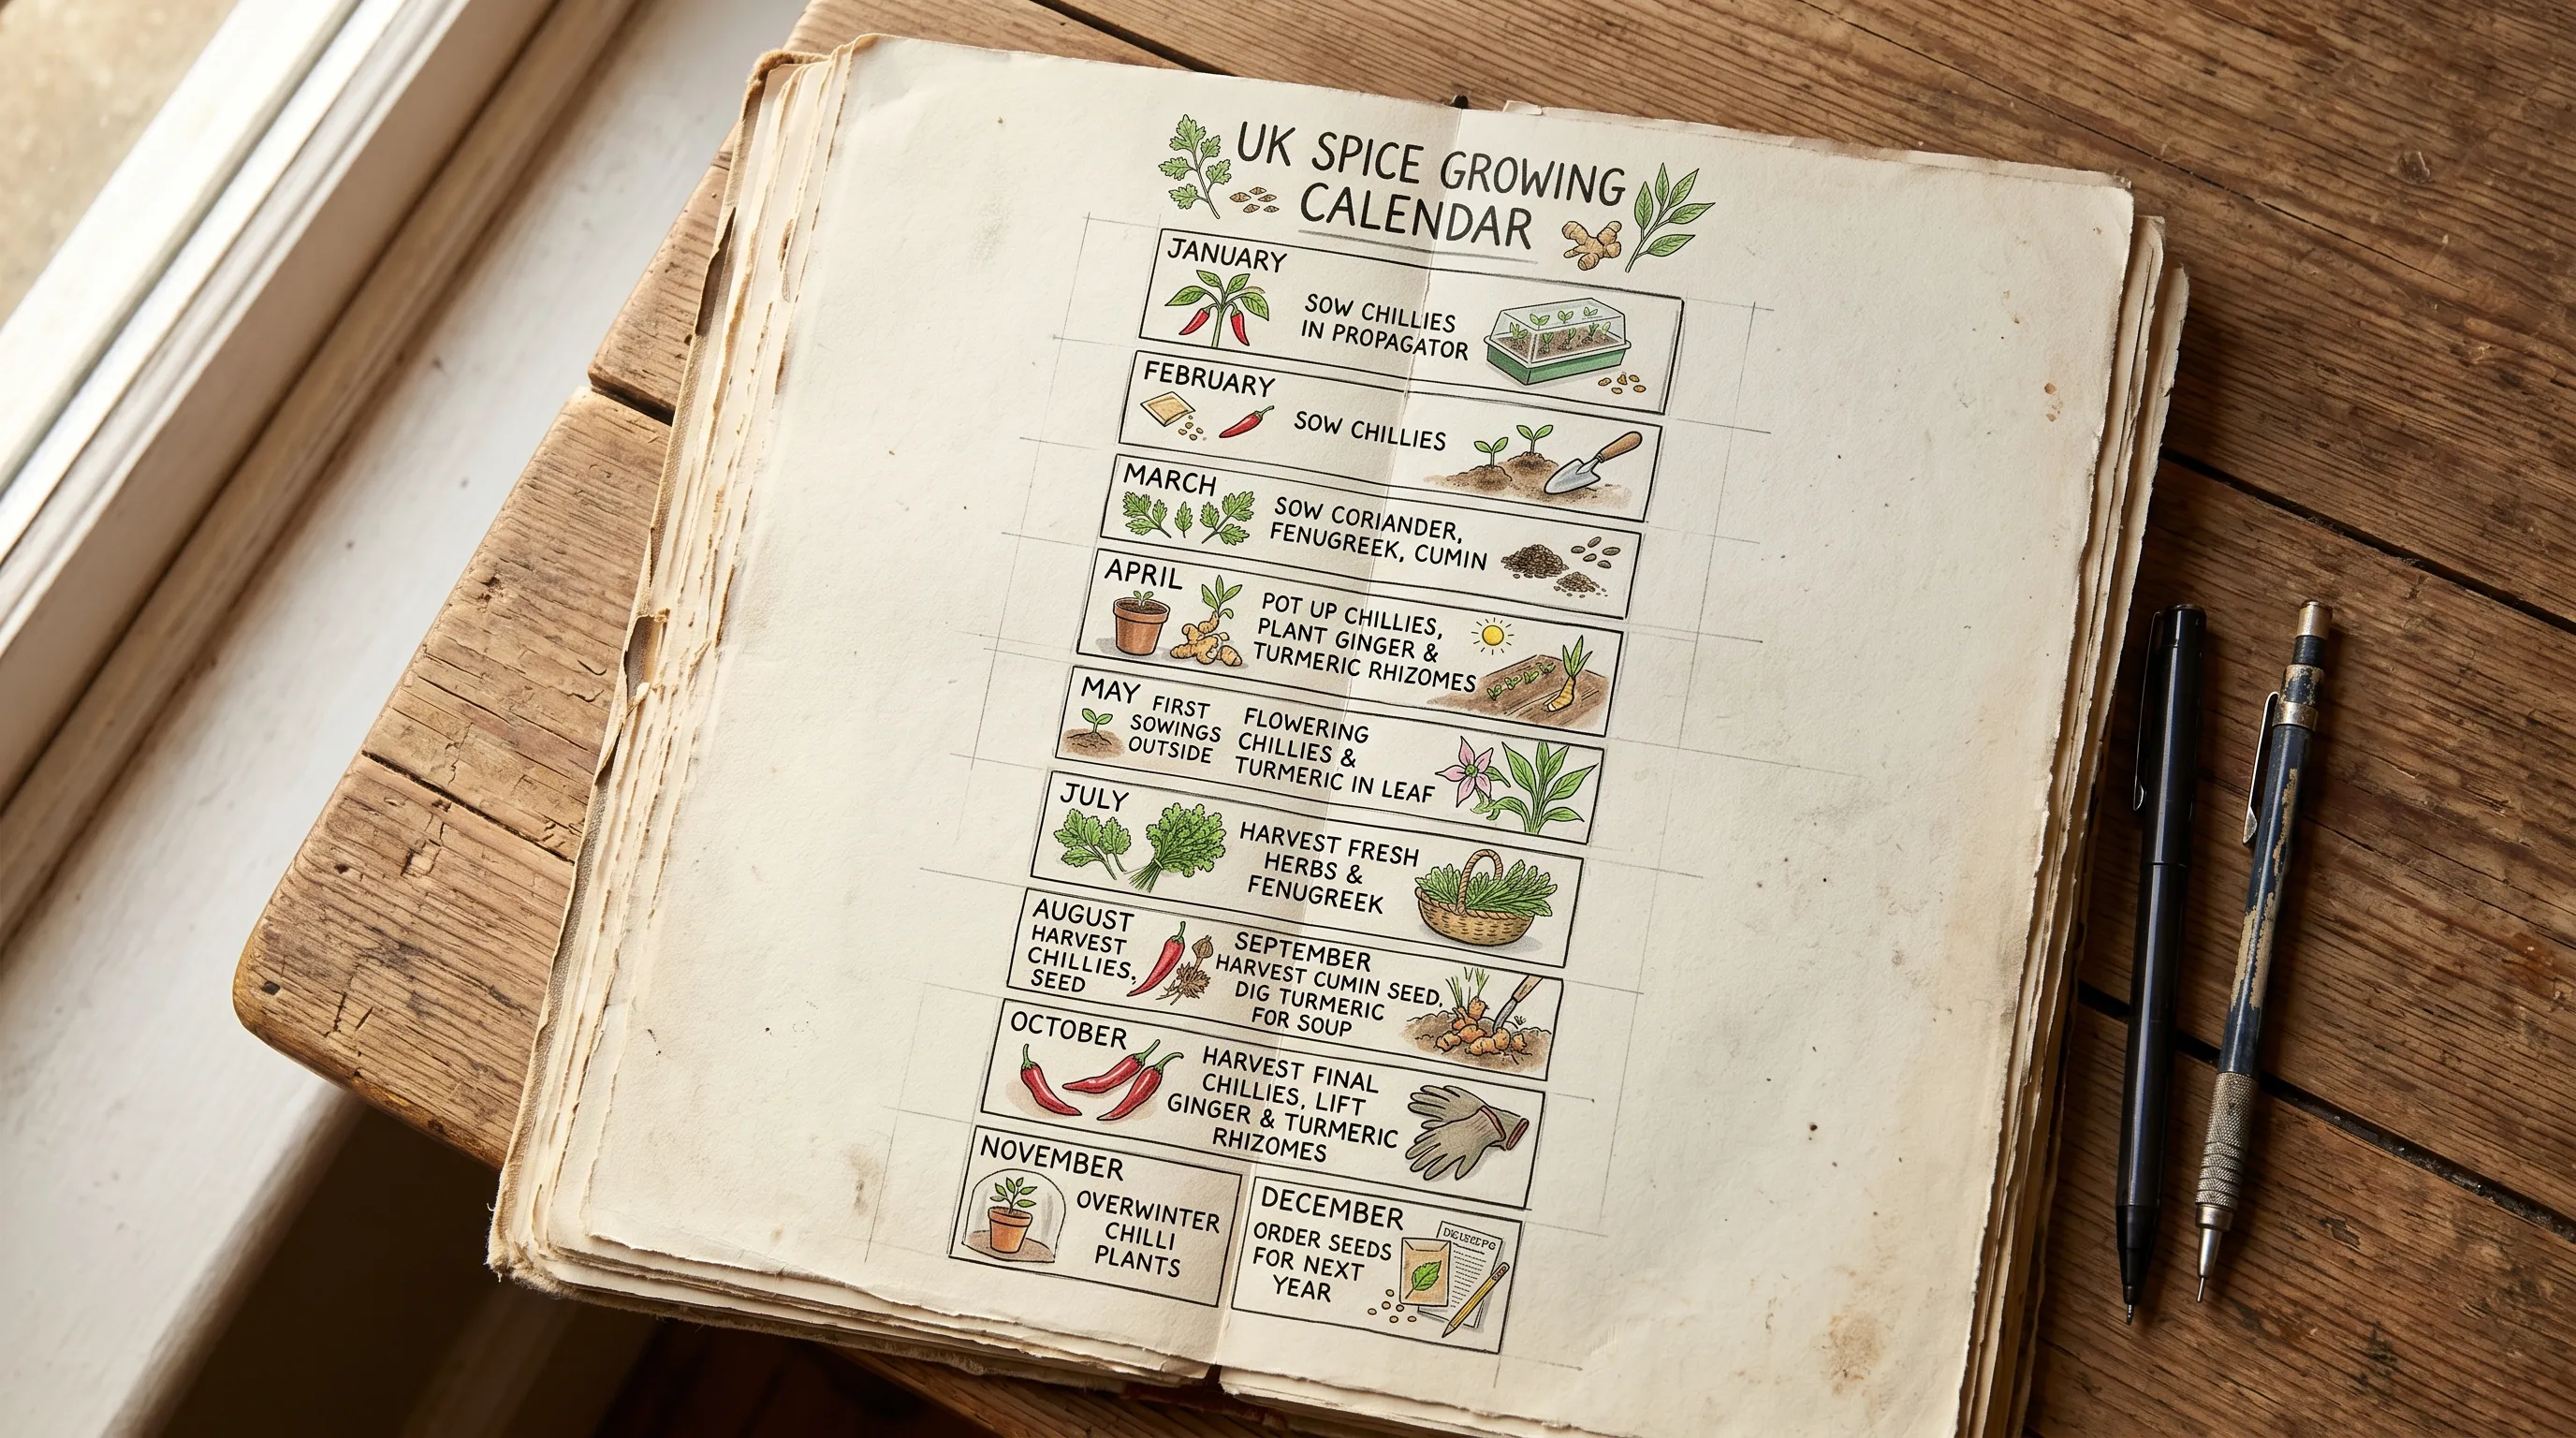 UK SPICE GROWING
CALENDAR
JANUARY
SOW CHILLIES
IN PROPAGATOR
FEBRUARY
SOW CHILLIES
MARCH
SOW CORIANDER,
FENUGREEK, CUMIN
APRIL
POT UP CHILLIES,
PLANT GINGER &
TURMERIC RHIZOMES
MAY
FIRST
SOWINGS
OUTSIDE
FLOWERING
CHILLIES &
TURMERIC IN LEAF
JULY
HARVEST FRESH
HERBS &
FENUGREEK
AUGUST
HARVEST
CHILLIES,
SEED
SEPTEMBER
HARVEST CUMIN SEED,
DIG TURMERIC
FOR SOUP
OCTOBER
HARVEST FINAL
CHILLIES, LIFT
GINGER & TURMERIC
RHIZOMES
NOVEMBER
OVERWINTER
CHILLI
PLANTS
DECEMBER
ORDER SEEDS
FOR NEXT
YEAR